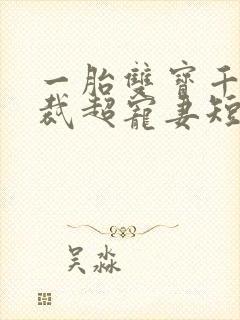 一胎雙寶千
裁超寵妻短
吴淼